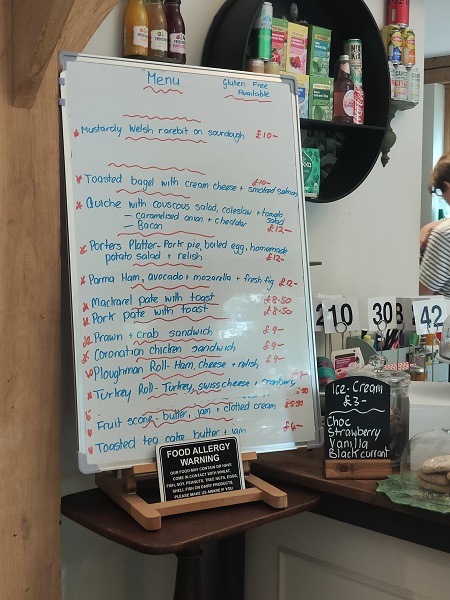 Menu
Gluten Free
Available
Mustardly Welsh rarebit on sourdough £10-
Toasted bagel with cream cheese + smoked salmon £10-
Quiche with couscous salad, coleslaw + tomato salad
- caramelised onion + cheddar £12-
- Bacon
Porters Platter - Pork pie, boiled egg, homemade
potato salad + relish £12-
Parma Ham, avocado + mozarella + fresh fig £12-
Mackarel pate with toast £8.50
Pork pate with toast £8.50
Prawn + crab sandwich £9-
Coronation chicken sandwich £9-
Ploughman Roll - Ham, cheese + relish £9-
Turkey Roll - Turkey, swiss cheese + cranberry
Fruit scone - butter, jam + clotted cream £5.50
Toasted tea cake butter + jam £4-
FOOD ALLERGY
WARNING
OUR FOOD MAY CONTAIN OR HAVE
COME IN CONTACT WITH WHEAT,
FISH, SOY, PEANUTS, TREE NUTS, EGGS,
SHELL FISH OR DAIRY PRODUCTS.
PLEASE MAKE US AWARE IF YOU
210
30
42
Ice-Cream
£3-
Choc
Strawberry
Vanilla
Blackcurrant